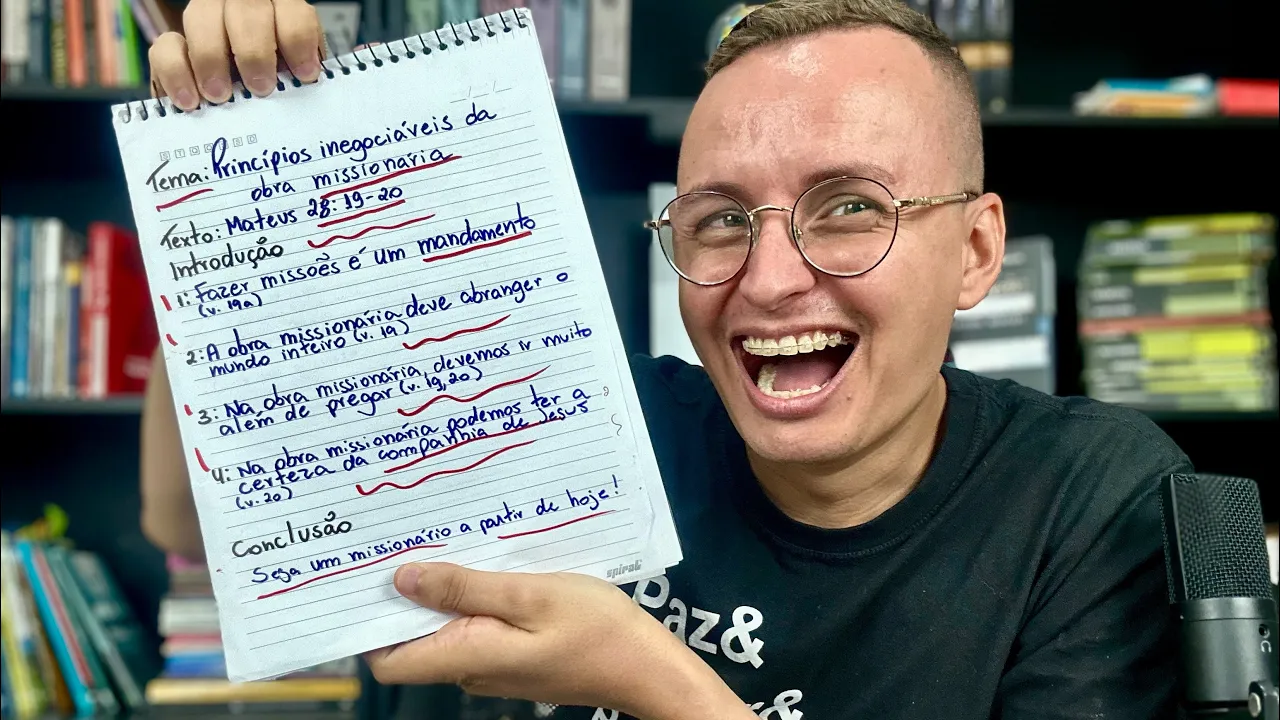 Tema: Princípios inegociáveis da
obra missionária
Texto: Mateus 28:19-20
Introdução
1: Fazer missões é um mandamento
(v. 19a)
2: A obra missionária deve abranger o
mundo inteiro (v. 19)
3: Na obra missionária, devemos ir muito
além de pregar (v. 19, 20)
4: Na obra missionária podemos ter a
certeza da companhia de Jesus
(v. 20)
Conclusão
Seja um missionário a partir de hoje!
spiral
Paz&